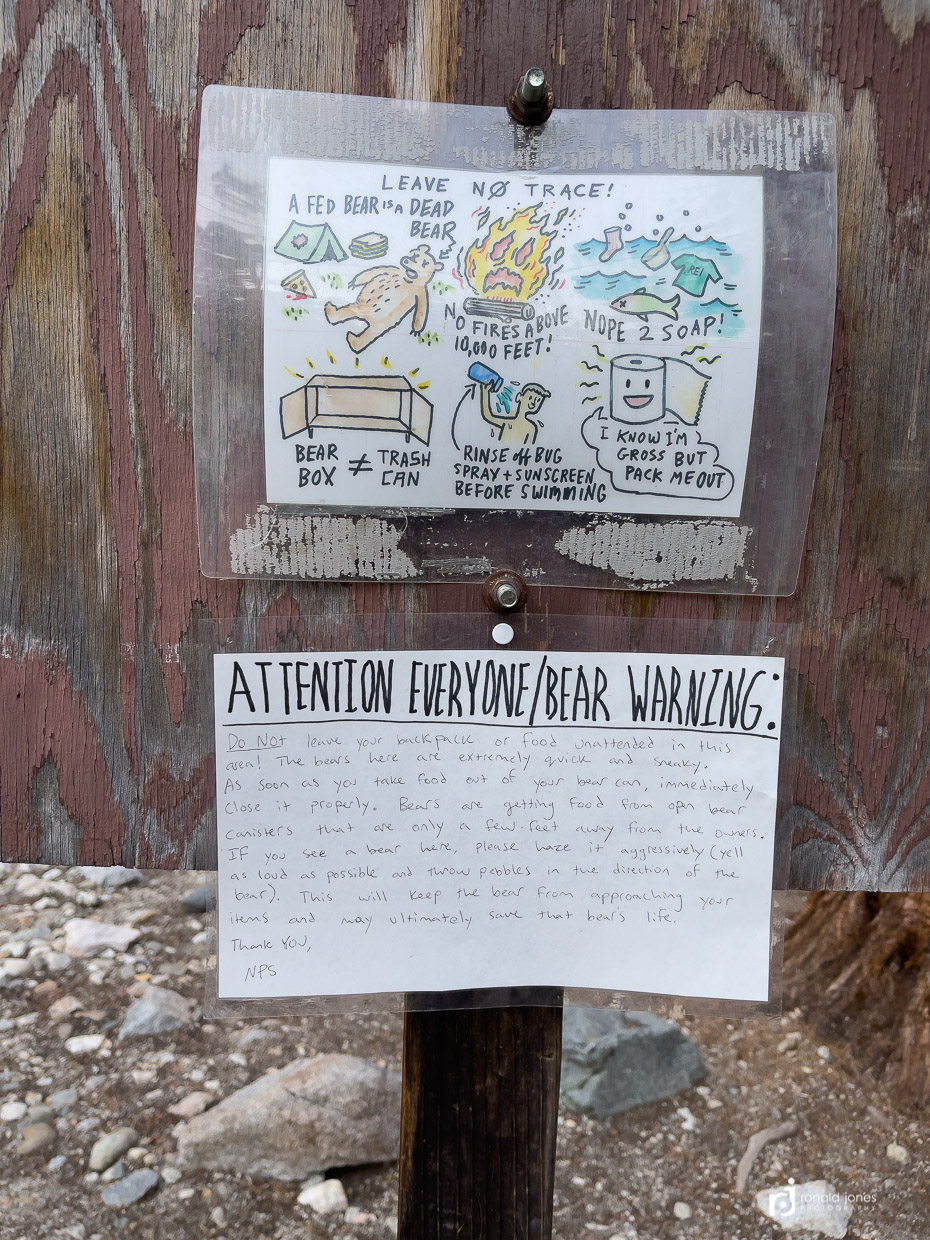 LEAVE NØ TRACE!
A FED BEAR IS A DEAD
BEAR
NO FIRES ABOVE
10,000 FEET!
REI
NOPE 2 SOAP!
BEAR
BOX ≠ TRASH
CAN
RINSE off BUG
SPRAY + SUNSCREEN
BEFORE SWIMMING
I KNOW I'M
GROSS BUT
PACK ME OUT
ATTENTION EVERYONE/BEAR WARNING:
Do NOT leave your backpack or food unattended in this
area! The bears here are extremely quick and sneaky.
As soon as you take food out of your bear can, immediately
close it properly. Bears are getting food from open bear
canisters that are only a few feet away from the owners.
If you see a bear here, please haze it aggressively (yell
as loud as possible and throw pebbles in the direction of the
bear). This will keep the bear from approaching your
items and may ultimately save that bears life.
Thank YOU,
NPS
ronald jones
PHOTOGRAPHY